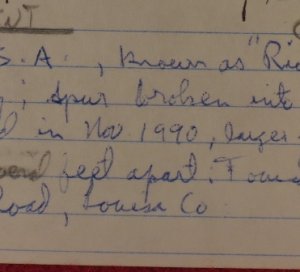 ENT
S.A., known as "Ric
; spur broken into
d in Nov 1990, larger
feet apart. Found
Road, Louisa Co